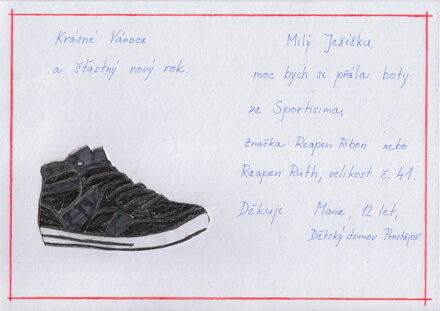 Krásné Vánoce
a šťastný nový rok.
Milý Ježíšku,
moc bych si přála boty
ze Sportisima,
značka: Reapen Ribon nebo
Reapen Ruth, velikost č. 41.
Děkuje Marie, 12 let,
Dětský domov Prostějov